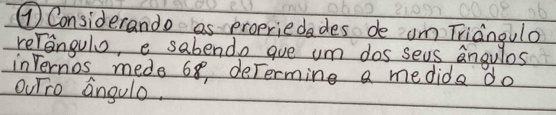 ① Considerando as propriedades de um Triângulo
reTângulo, e sabendo que um dos seus ângulos
inTernos mede 68, deTermine a medida do
ouTro ângulo.